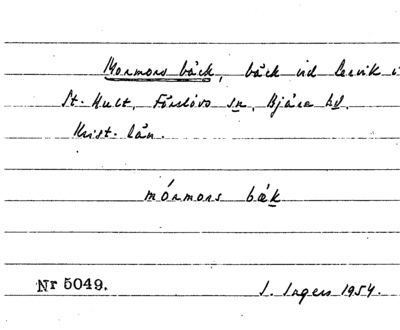 Mormors bäck, bäck vid Lervik i
St. Hult, Förslövs sn, Bjäre hd.
Krist. län.
mórmors bæk
Nr 5049.
I. Ingers 1954.